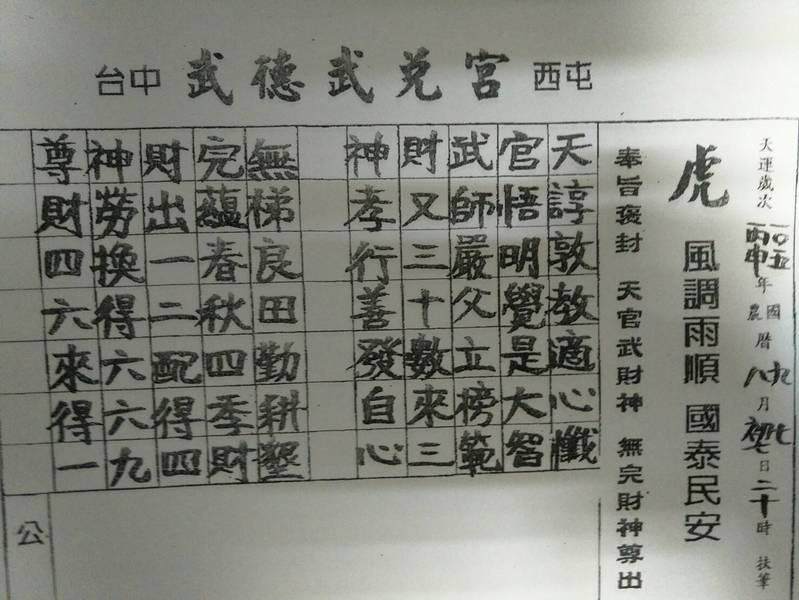 台中 武德武兌宮 西屯
天運歲次 一〇五 丙申 年 國農 曆 月 日 二十 時 扶筆
虎 風調雨順 國泰民安
奉旨褒封 天官武財神 無完財神尊出
天諄敦教適心懺
官悟明覺是大智
武師嚴父立榜範
財又三十數來三
神孝行善發自心
無梯良田勤耕墾
完蘊春秋四季財
財出一二配得四
神勞換得六六九
尊財四六來得一
公